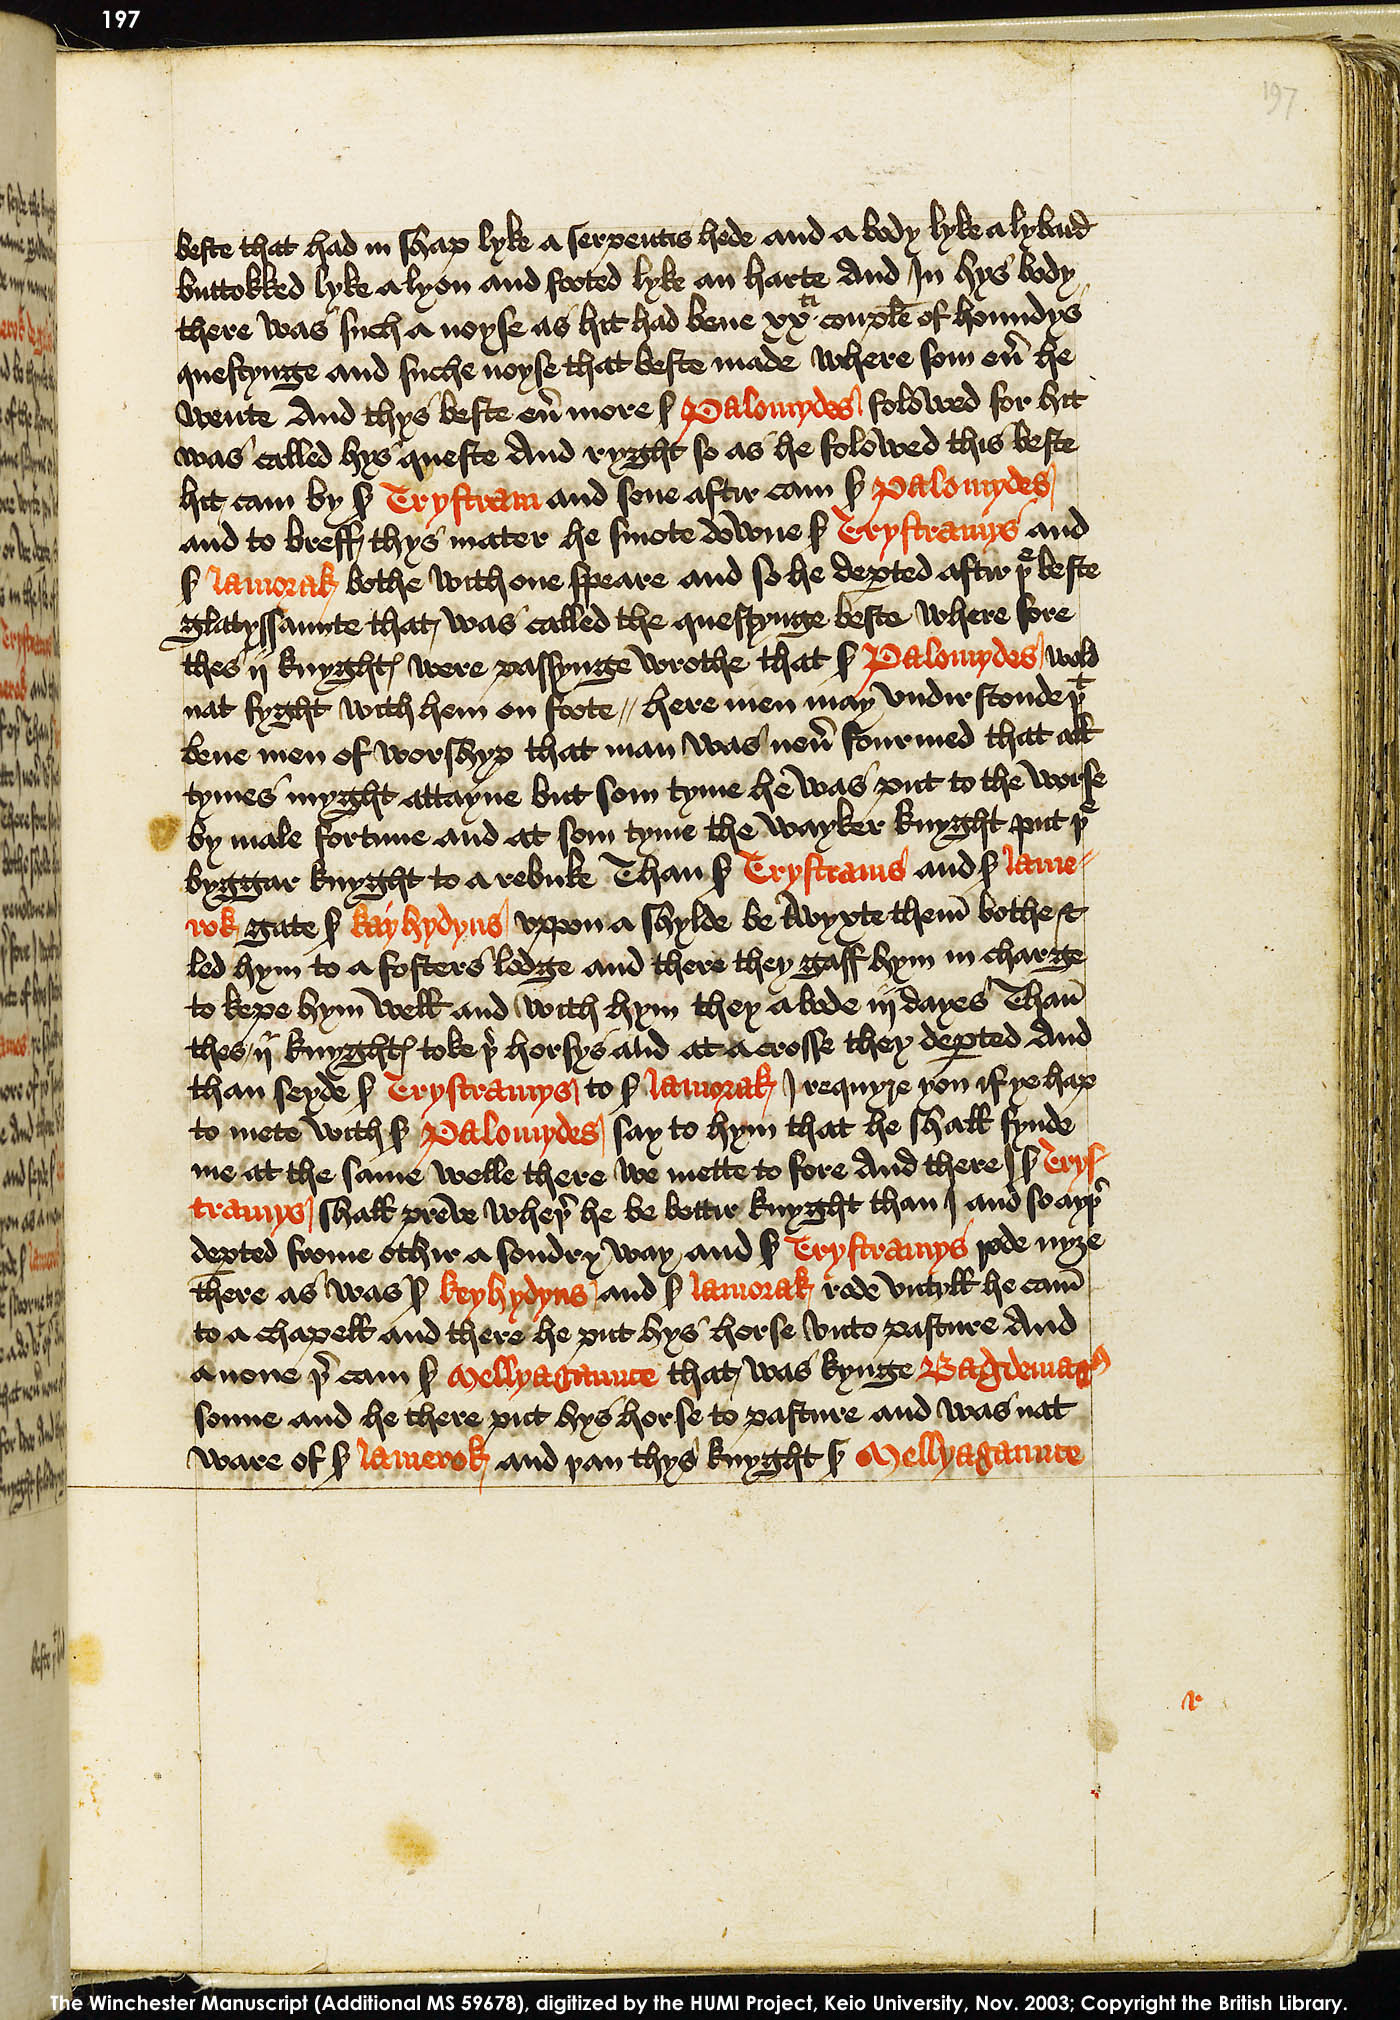 197
197
beste that had in shap lyke a serpentis hede and a body lyke a lybud
buttokked lyke a lyon and footed lyke an harte And In hys body
there was such a noyse as hit had bene xxti couple of houndys
questynge and suche noyse that beste made where som eũ he
wente And thys beste eũ more s̃ Palomydes folowed for hit
was called hys queste And ryght so as he folowed this beste
hit cam by s̃ Trystram and sone aftir cam s̃ Palomydes
and to breff thys mater he smote downe s̃ Trystramys and
s̃ lamorak bothe with one speare and so he depted aftir þe beste
glatyssaunte that was called the questynge beste where fore
thes ij knyghtꝭ were passynge wrothe that s̃ Palomydes wold
nat fyght with hem on foote // here men may undirstonde þt
bene men of worshyp that man was neũ fourmed that all
tymes myght attayne but som tyme he was put to the worse
by male fortune and at som tyme the wayker knyght put þe
byggar knyght to a rebuke Than s̃ Trystrams and s̃ lame=
rok gate s̃ kayhydyns uppon a shylde be twyxte them̃ bothe &
led hym to a fosters lodge and there they gaff hym in charge
to kepe hym well and with hym they abode iij dayes Than̄
thes ij knyghtꝭ toke þ̉ horsys and at a crosse they depted And
than seyde s̃ Trystramys to s̃ lamorak I requyre you if ye hap
to mete with s̃ Palomydes say to hym that he shall fynde
me at the same welle there we mette to fore And there I s̃ Trys=
tramys shall preve wheþ̉ he be bettir knyght than I and so ayþ̉
depted frome othir a sondry way and s̃ Trystramys rode nyze
there as was s̃ keyhydyns and s̃ lamorak rode untyll he cam̄
to a chapell and there he put hys horse unto pasture And
anone þ̉ cam s̃ Mellyagaunce that was kynge Bagdemagꝰ
sonne and he there put hys horse to pasture and was nat
ware of s̃ lamerok and þan thys knyght s̃ Mellyagaunce
r
The Winchester Manuscript (Additional MS 59678), digitized by the HUMI Project, Keio University, Nov. 2003; Copyright the British Library.